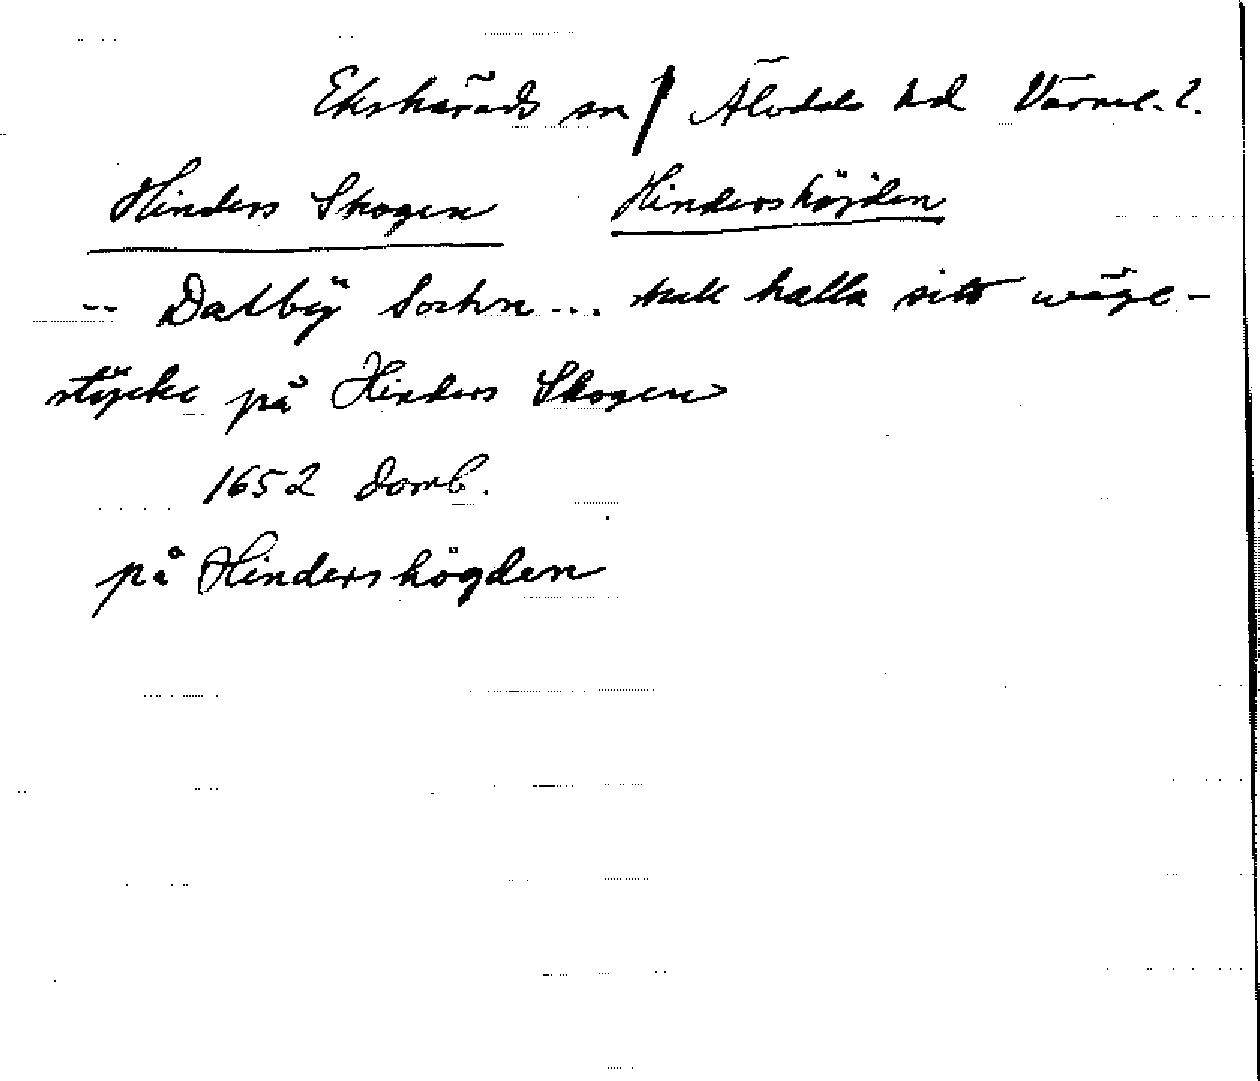 Ekshärads sn / Älvdals hd Värml. l.
Hinders Skogen Hindershöjden
-- Dalbÿ Sochn ... skall halla sitt wäge-
stÿcke på Hinders Skogen
1652 domb.
på Hindershögden